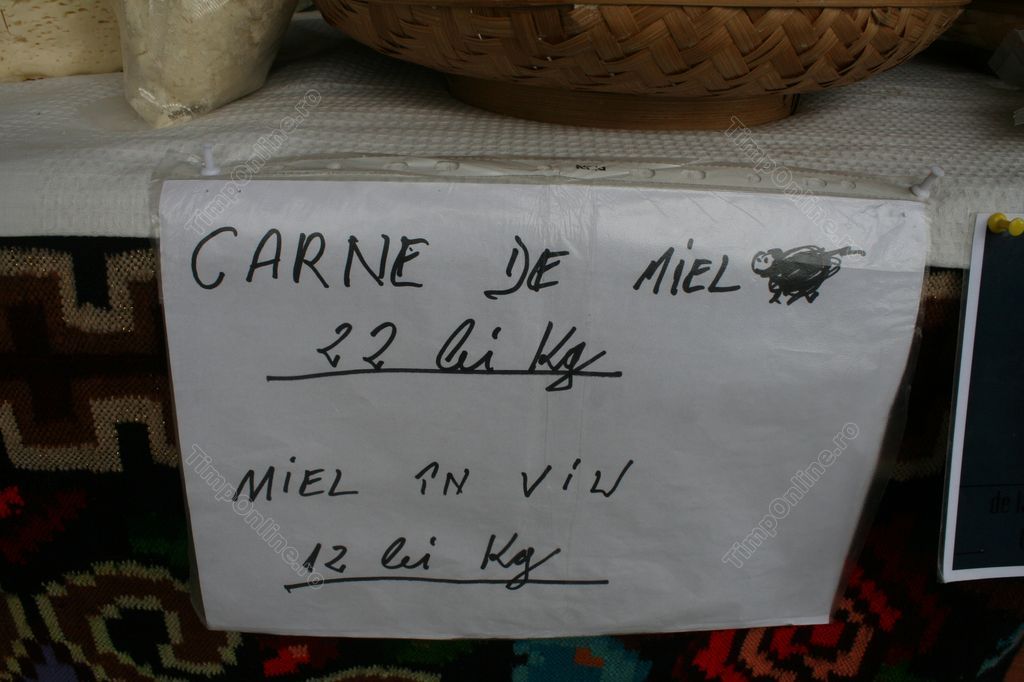 CARNE DE MIEL
22 lei Kg
MIEL ÎN VIU
12 lei Kg
TimpOnline.ro
TimpOnline.ro
TimpOnline.ro
TimpOnline.ro